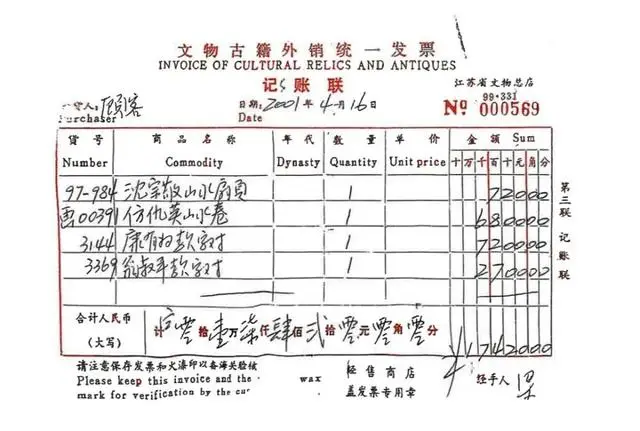 文物古籍外销统一发票
INVOICE OF CULTURAL RELICS AND ANTIQUES
记账联
江苏省文物总店
99·331
顾客
Purchaser
日期: 2001年4月16
Date
№ 000569
货号 商品名称 年代 数量 单价 金额 Sum
Number Commodity Dynasty Quantity Unit price 十万千百十元角分
97-984 沈宗敬山水扇页 1 72000
画00391 仿仇英山水卷 1 680000
3144 康有为款字对 1 720000
3369 翁叔平款字对 1 270000
合计人民币
(大写)
计 零拾壹万柒仟肆佰弍拾零元零角零分 ¥1742000
第三联 记账联
请注意保存发票和火漆印以备海关验核
Please keep this invoice and the wax
mark for verification by the
经售商店
盖发票专用章
经手人